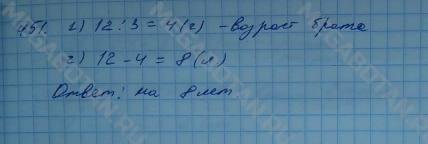 451. 1) 12 : 3 = 4 (г) - возраст брата
2) 12 - 4 = 8 (л)
Ответ: на 8 лет
MEGABOTAN.RU